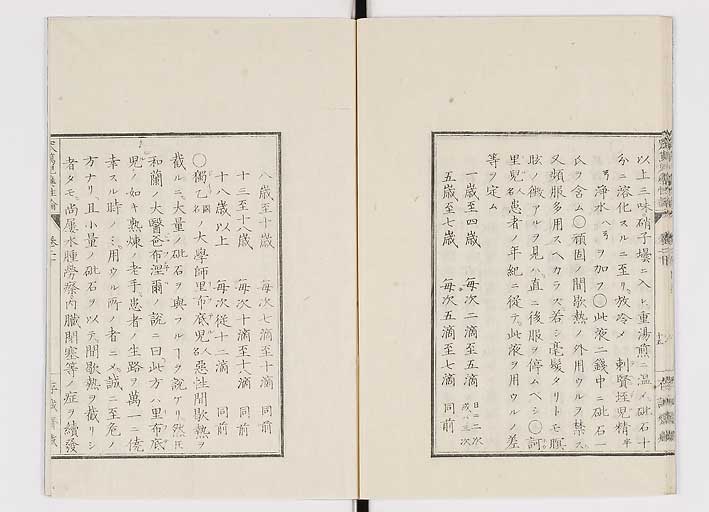 以上三味硝子壜ニ入レ重湯煎ニ温メ砒石十
分ニ溶化スルニ至リ放冷メ 刺賢垤児精 半
弓 浄水 八弓 ヲ加フ〇此液二銭中ニ砒石一
氏ヲ含ム〇頑固ノ間歇熱ノ外用ウルヲ禁ス
又頻服多用スヘカラス若シ毫髪タリトモ瞑
眩ノ徴アルヲ見ハ直ニ後服ヲ停ムヘシ〇訶
里児 人名 患者ノ年紀ニ従テ此液ヲ用ウルノ差
等ヲ定ム
一歳至四歳 毎次二滴至五滴 日ニ二次或ハ三次
五歳至七歳 毎次五滴至七滴 同前
八歳至十歳 毎次七滴至十滴 同前
十三至十八歳 毎次十滴至十二滴 同前
十八歳以上 毎次従十二滴 同前
〇獨乙 国名 ノ大學師里布底児 人名 悪性間歇熱ヲ
截ルニ大量ノ砒石ヲ與フルヿヲ説ケリ然𪜈
和蘭ノ大醫爸布涅爾ノ説ニ曰此方ハ里布底
児ノ如キ熟煉ノ老手患者ノ生路ヲ萬一ニ僥
幸スル時ノミ用ウル所ノ者ニメ誠ニ至危ノ
方ナリ且小量ノ砒石ヲ以テ間歇熱ヲ截リシ
者タモ尚屡水腫勞瘵内臓閉塞等ノ症ヲ續發